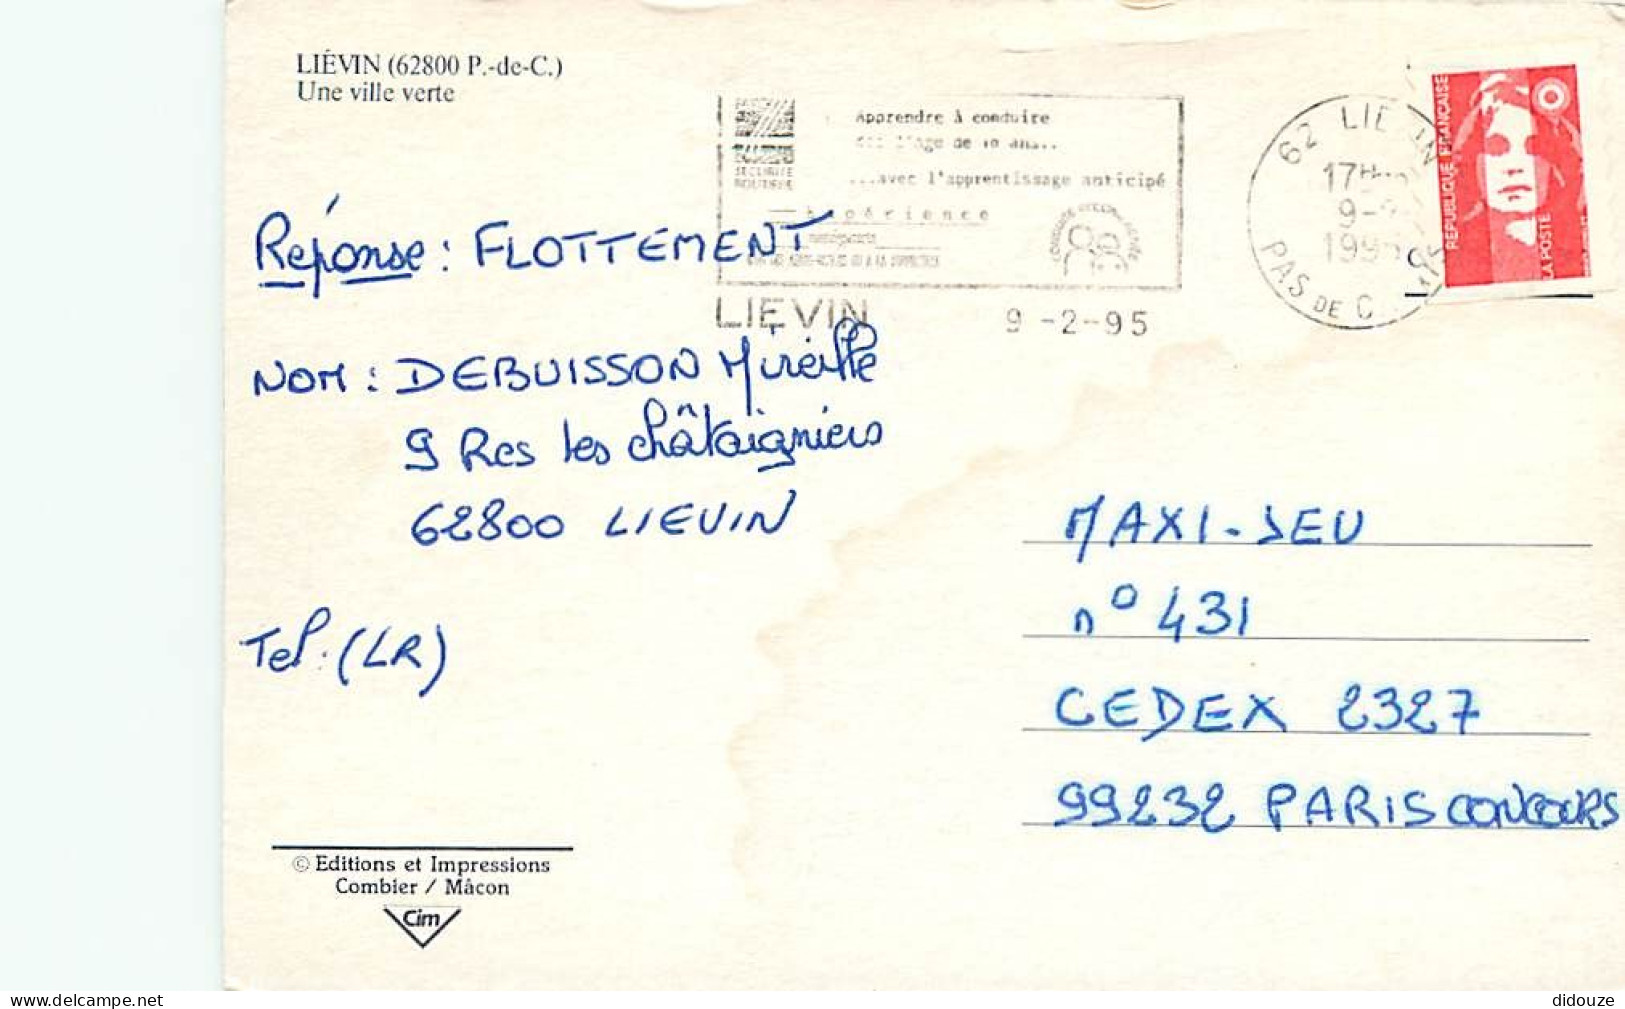 LIÉVIN (62800 P.-de-C.)
Une ville verte
SECURITE
ROUTIERE
Apprendre à conduire
l'âge de ans..
...avec l'apprentissage anticipé
Expérience
LIEVIN
9 -2-95
62 LIEVIN
17H
9-
1995
PAS DE C
RÉPUBLIQUE FRANÇAISE
LA POSTE
Réponse : FLOTTEMENT
NOM : DEBUISSON Mireille
9 Res les châtaigniers
62800 LIEVIN
Tel : (LR)
MAXI-JEU
n° 431
CEDEX 2327
99232 PARIS CONCOURS
© Editions et Impressions
Combier / Mâcon
Cim
www.delcampe.net
didouze